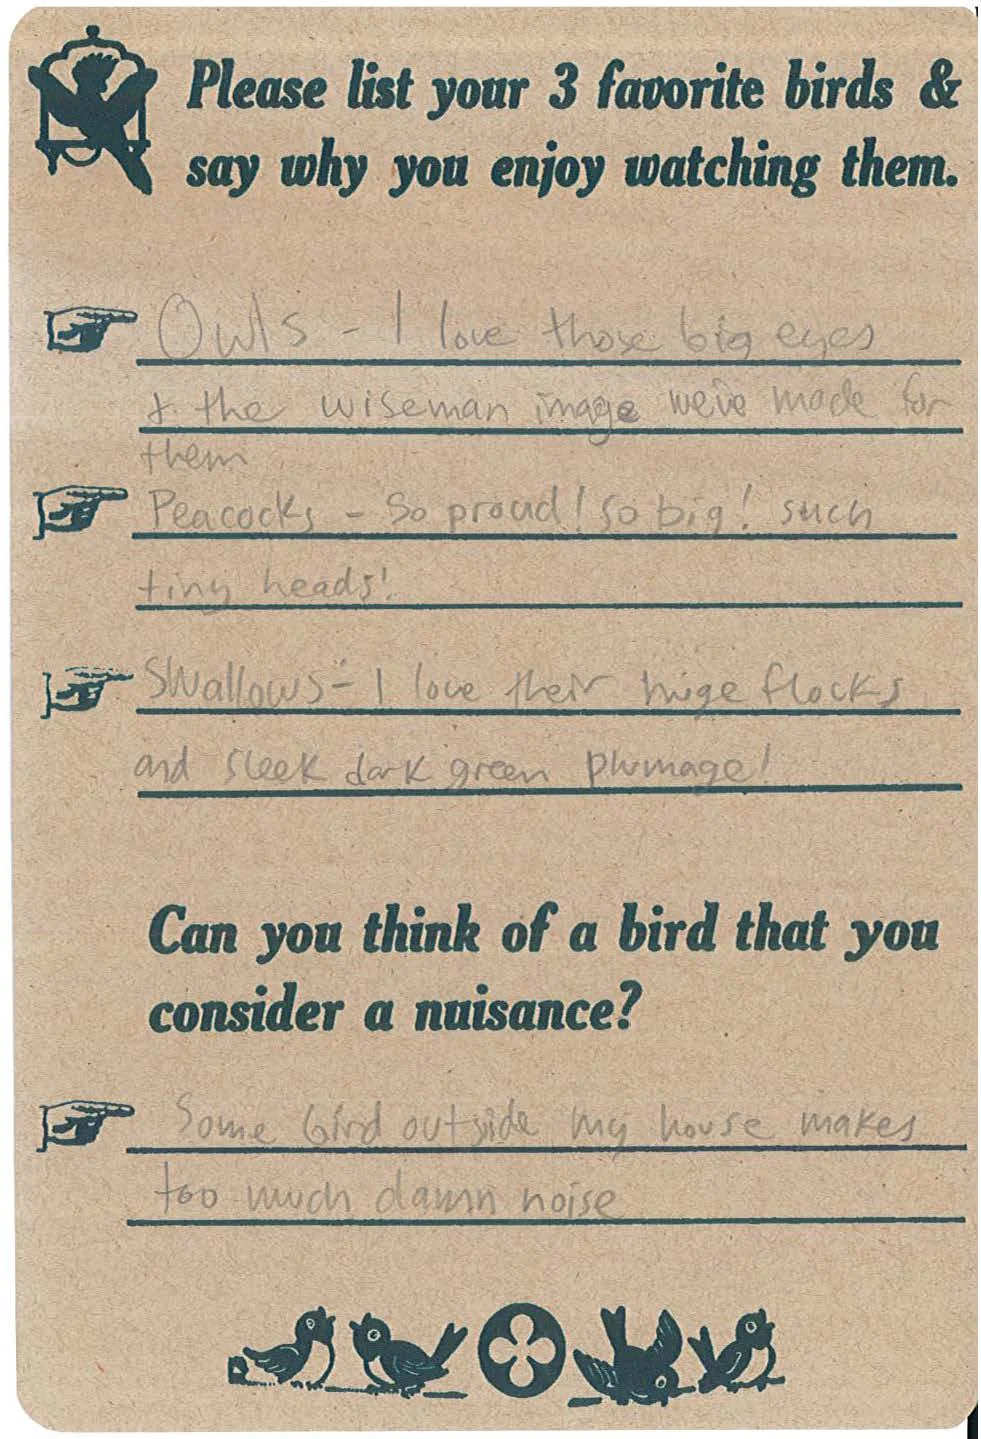 Please list your 3 favorite birds &
say why you enjoy watching them.
Owls - I love those big eyes
+ the wiseman image we've made for
them
Peacocks - So proud! so big! such
tiny heads!
Swallows - I love their huge flocks
and sleek dark green plumage!
Can you think of a bird that you
consider a nuisance?
Some bird outside my house makes
too much damn noise